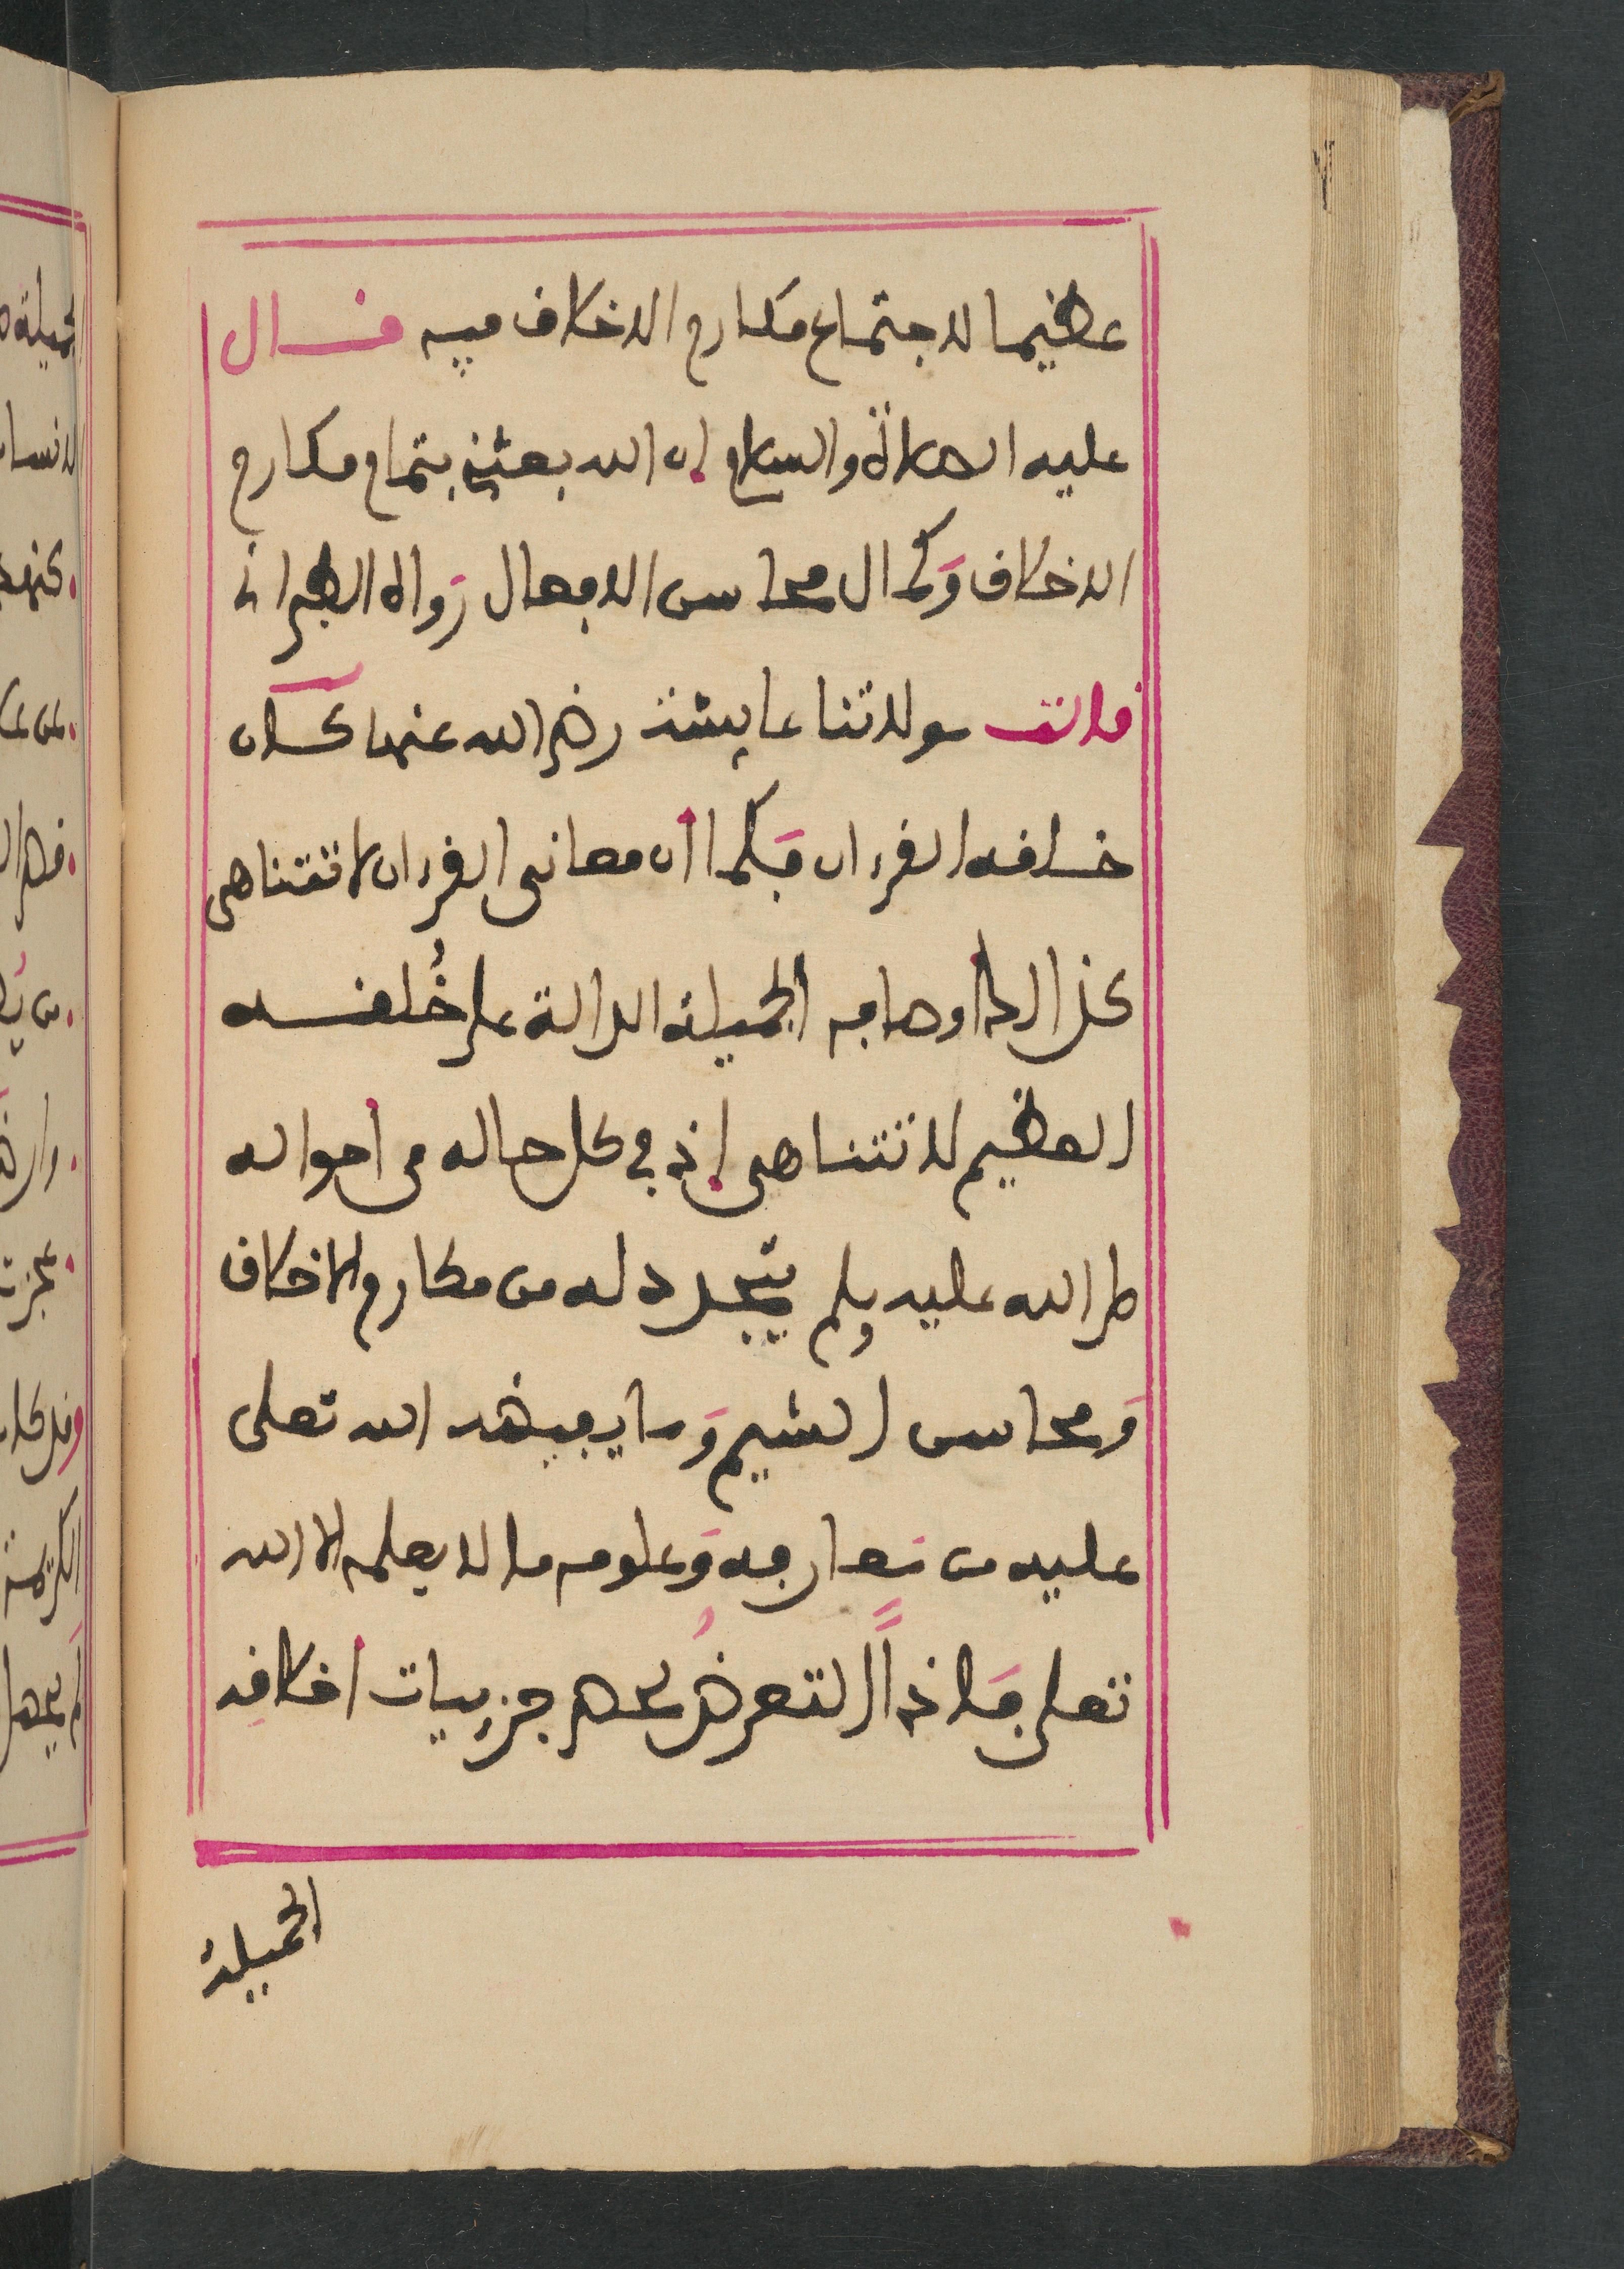 عظيما لاجتماع مكارم الاخلاق فيه قال
عليه الصلاة والسلام ان الله بعثني بتمام مكارم
الاخلاق وَكمال محاسن الافعال رَواه الطبراني
قالت سولاتنا عايشة رضي الله عنها كان
خلقه القرءان فَكما أن معاني القرءان لا تتناهى
كذالك أوصافه الجميلة الدالة على خُلقه
العظيم لا تتناهى إذ في كل حاله من أحواله
صلى الله عليه وسلم يتجدد له من مكارم الاخلاق
وَمحاسن الشيم وَما يفيضه الله تعلى
عليه من مَعارفه وَعلومه ما لا يعلمه الا الله
تعلى فَإذاً التعرضُ لحصر جزييات أخلاقِه
الجميلة